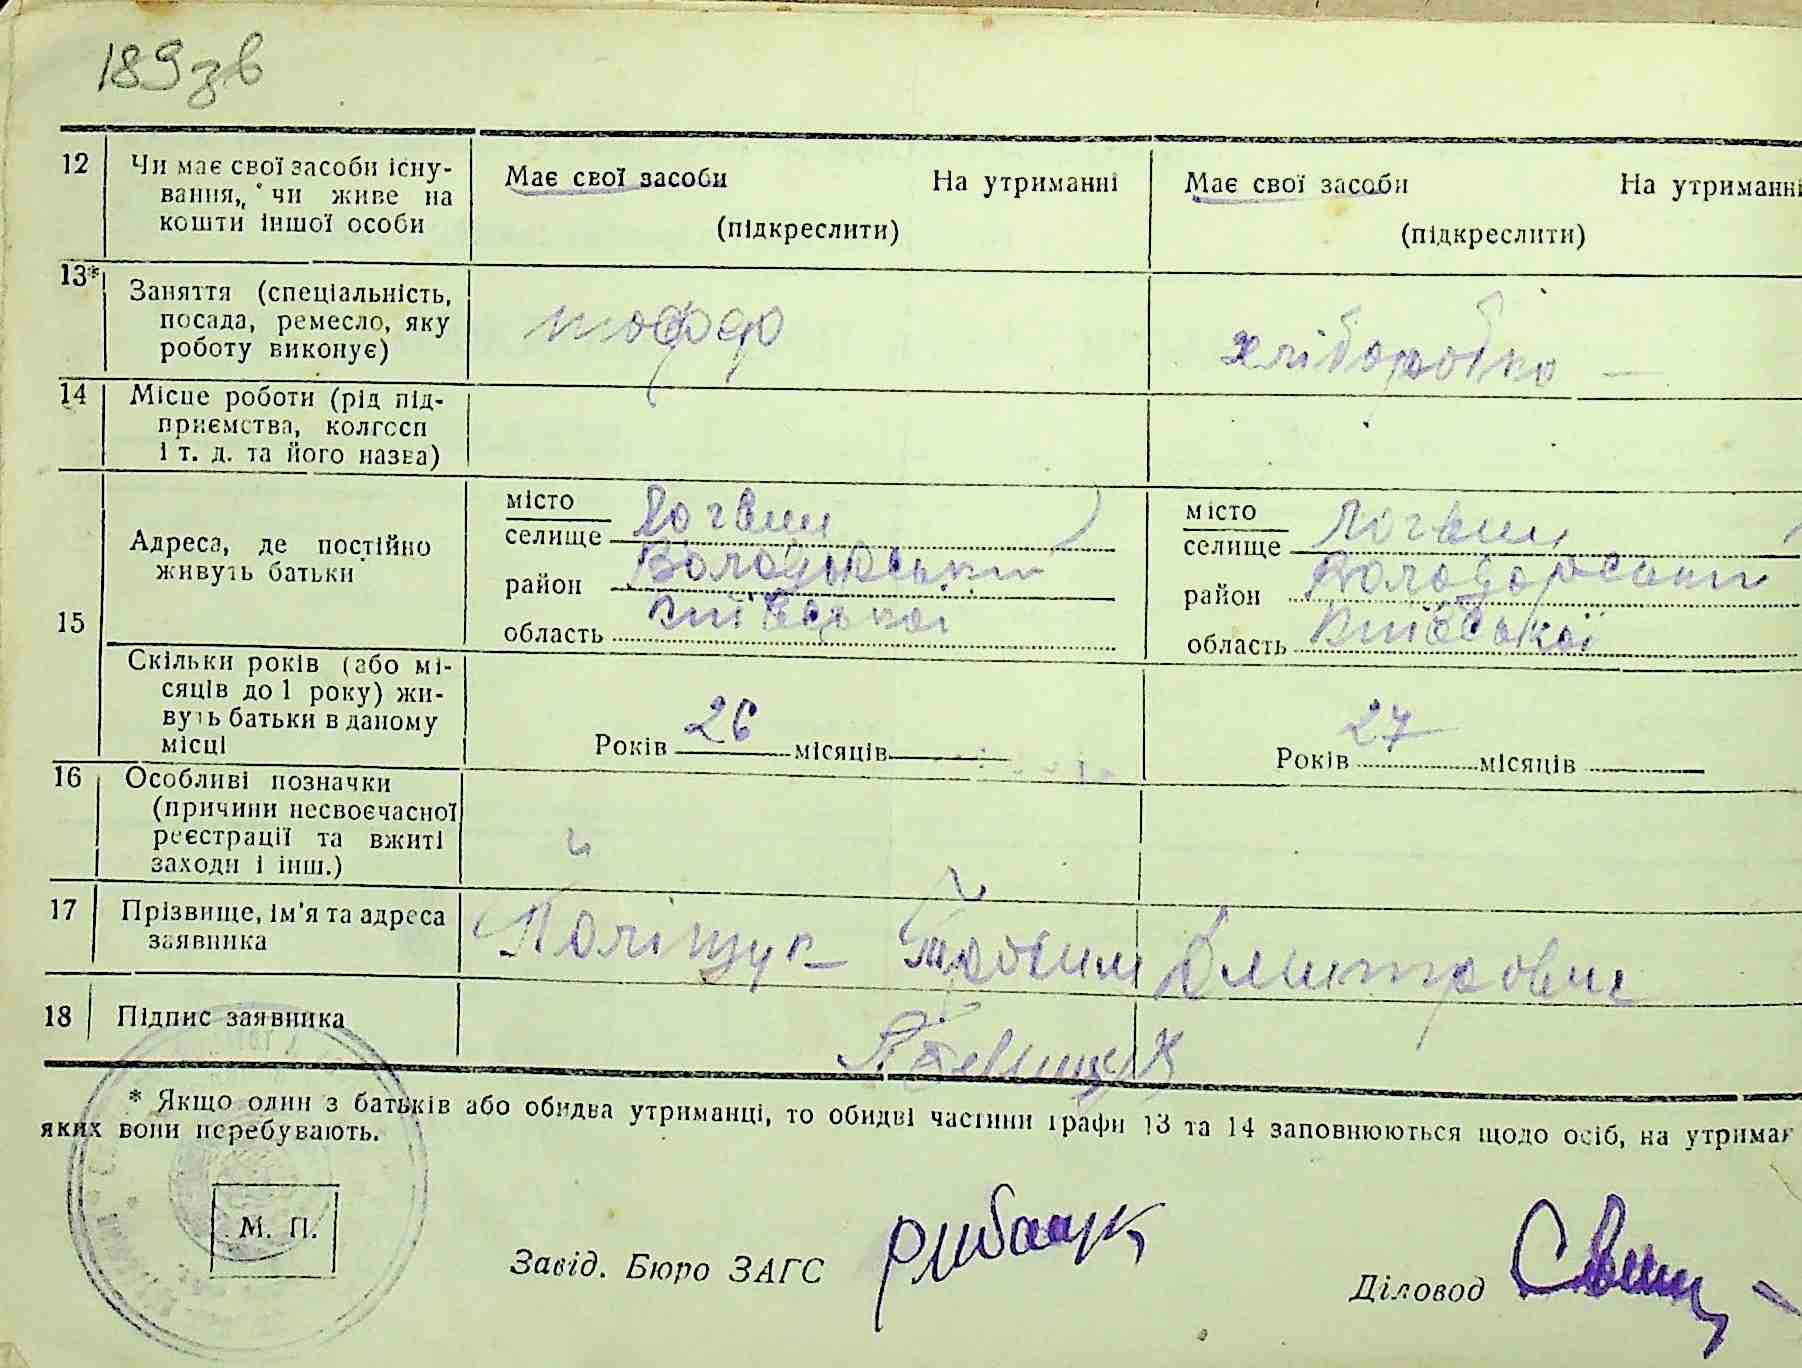 189зв
12 Чи має свої засоби існу-
вання, чи живе на
кошти іншої особи
Має свої засоби На утриманні
(підкреслити)
Має свої засоби На утриманні
(підкреслити)
13* Заняття (спеціальність,
посада, ремесло, яку
роботу виконує)
шофер
хліборобка —
14 Місце роботи (рід під-
приємства, колгосп
і т. д. та його назва)
15 Адреса, де постійно
живуть батьки
місто
селище Логвин
район Володарський
область Київської
місто
селище Логвин
район Володарський
область Київської
Скільки років (або мі-
сяців до 1 року) жи-
вуть батьки в даному
місці
Років 26 місяців
Років 27 місяців
16 Особливі позначки
(причини несвоєчасної
реєстрації та вжиті
заходи і інш.)
17 Прізвище, ім'я та адреса
заявника
Поліщук Трохим Дмитрович
18 Підпис заявника
* Якщо один з батьків або обидва утриманці, то обидві частини графи 13 та 14 заповнюються щодо осіб, на утриман
яких вони перебувають.
М. П.
Завід. Бюро ЗАГС Рибачук
Діловод